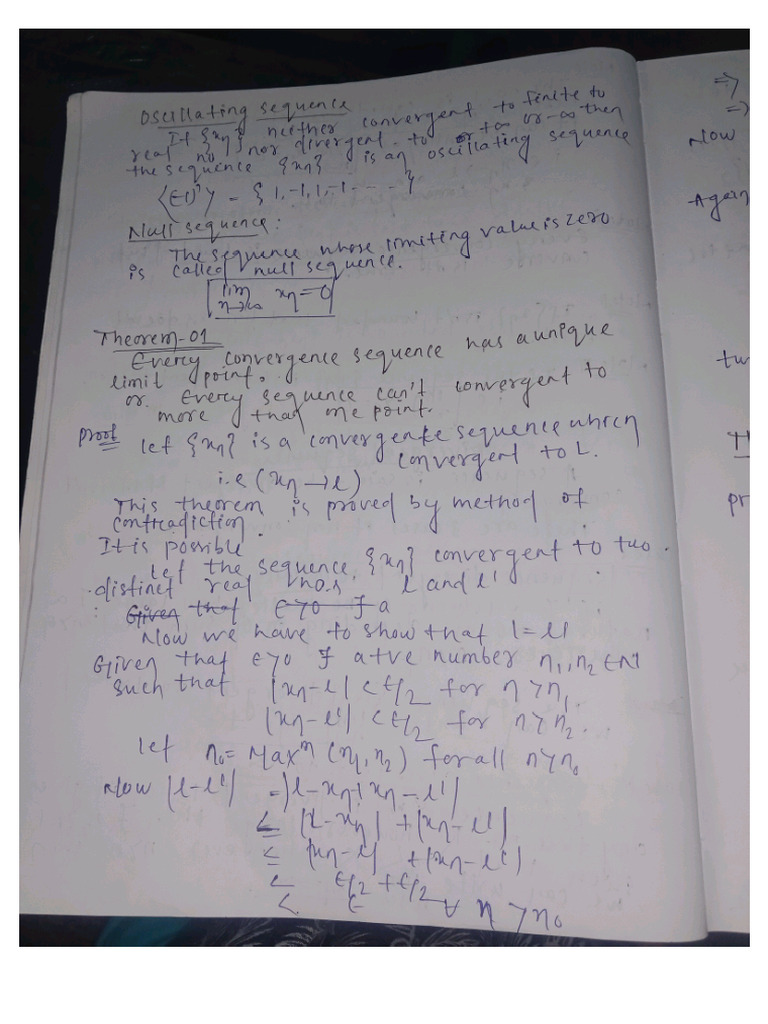 Oscillating sequence
If {xn} neither convergent to finite to
real no nor divergent to or +∞ or -∞ then
the sequence {xn} is an oscillating sequence
<(-1)^n> = {1, -1, 1, -1 - - - - }
Null sequence:
The sequence whose limiting value is zero
is called null sequence.
lim n→∞ xn = 0
Theorem-01
Every convergence sequence has a unique
limit point.
or Every sequence can't convergent to
more than one point.
Proof let {xn} is a sequence which
convergent to L.
i.e (xn → l)
This theorem is proved by method of
contradiction.
It is possible
Let the sequence {xn} convergent to two
distinct real no.s l and l'
Given that ε>0 ∃ a
Now we have to show that l = l'
Given that ε>0 ∃ a +ve number n1, n2 ∈ N
such that |xn - l| < ε/2 for n > n1
|xn - l'| < ε/2 for n > n2
let n0 = Max^m (n1, n2) for all n > n0
Now |l - l'| = |l - xn + xn - l'|
≤ |l - xn| + |xn - l'|
≤ |xn - l| + |xn - l'|
< ε/2 + ε/2
< ε ∀ n > n0
⇒
⇒
Now
Again
tw
Th
pr